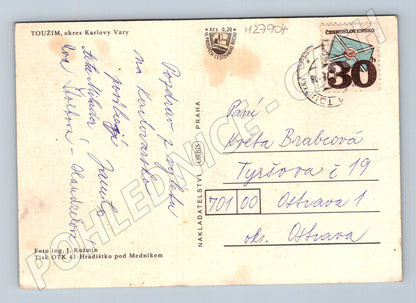 TOUŽIM, okres Karlovy Vary
Kčs 0,20
H27904
ČESKOSLOVENSKO
30
Pozdrav z výletu
na Karlovarsku
posílají
Jarmila
Eva
NAKLADATELSTVÍ ORBIS PRAHA
Paní
Květa Brabcová
Tyršova č 19
701 00 Ostrava 1
okr. Ostrava
Foto ing. J. Kuzmin
Tisk OTK 41 Hradištko pod Medníkem
POHLEDNICE